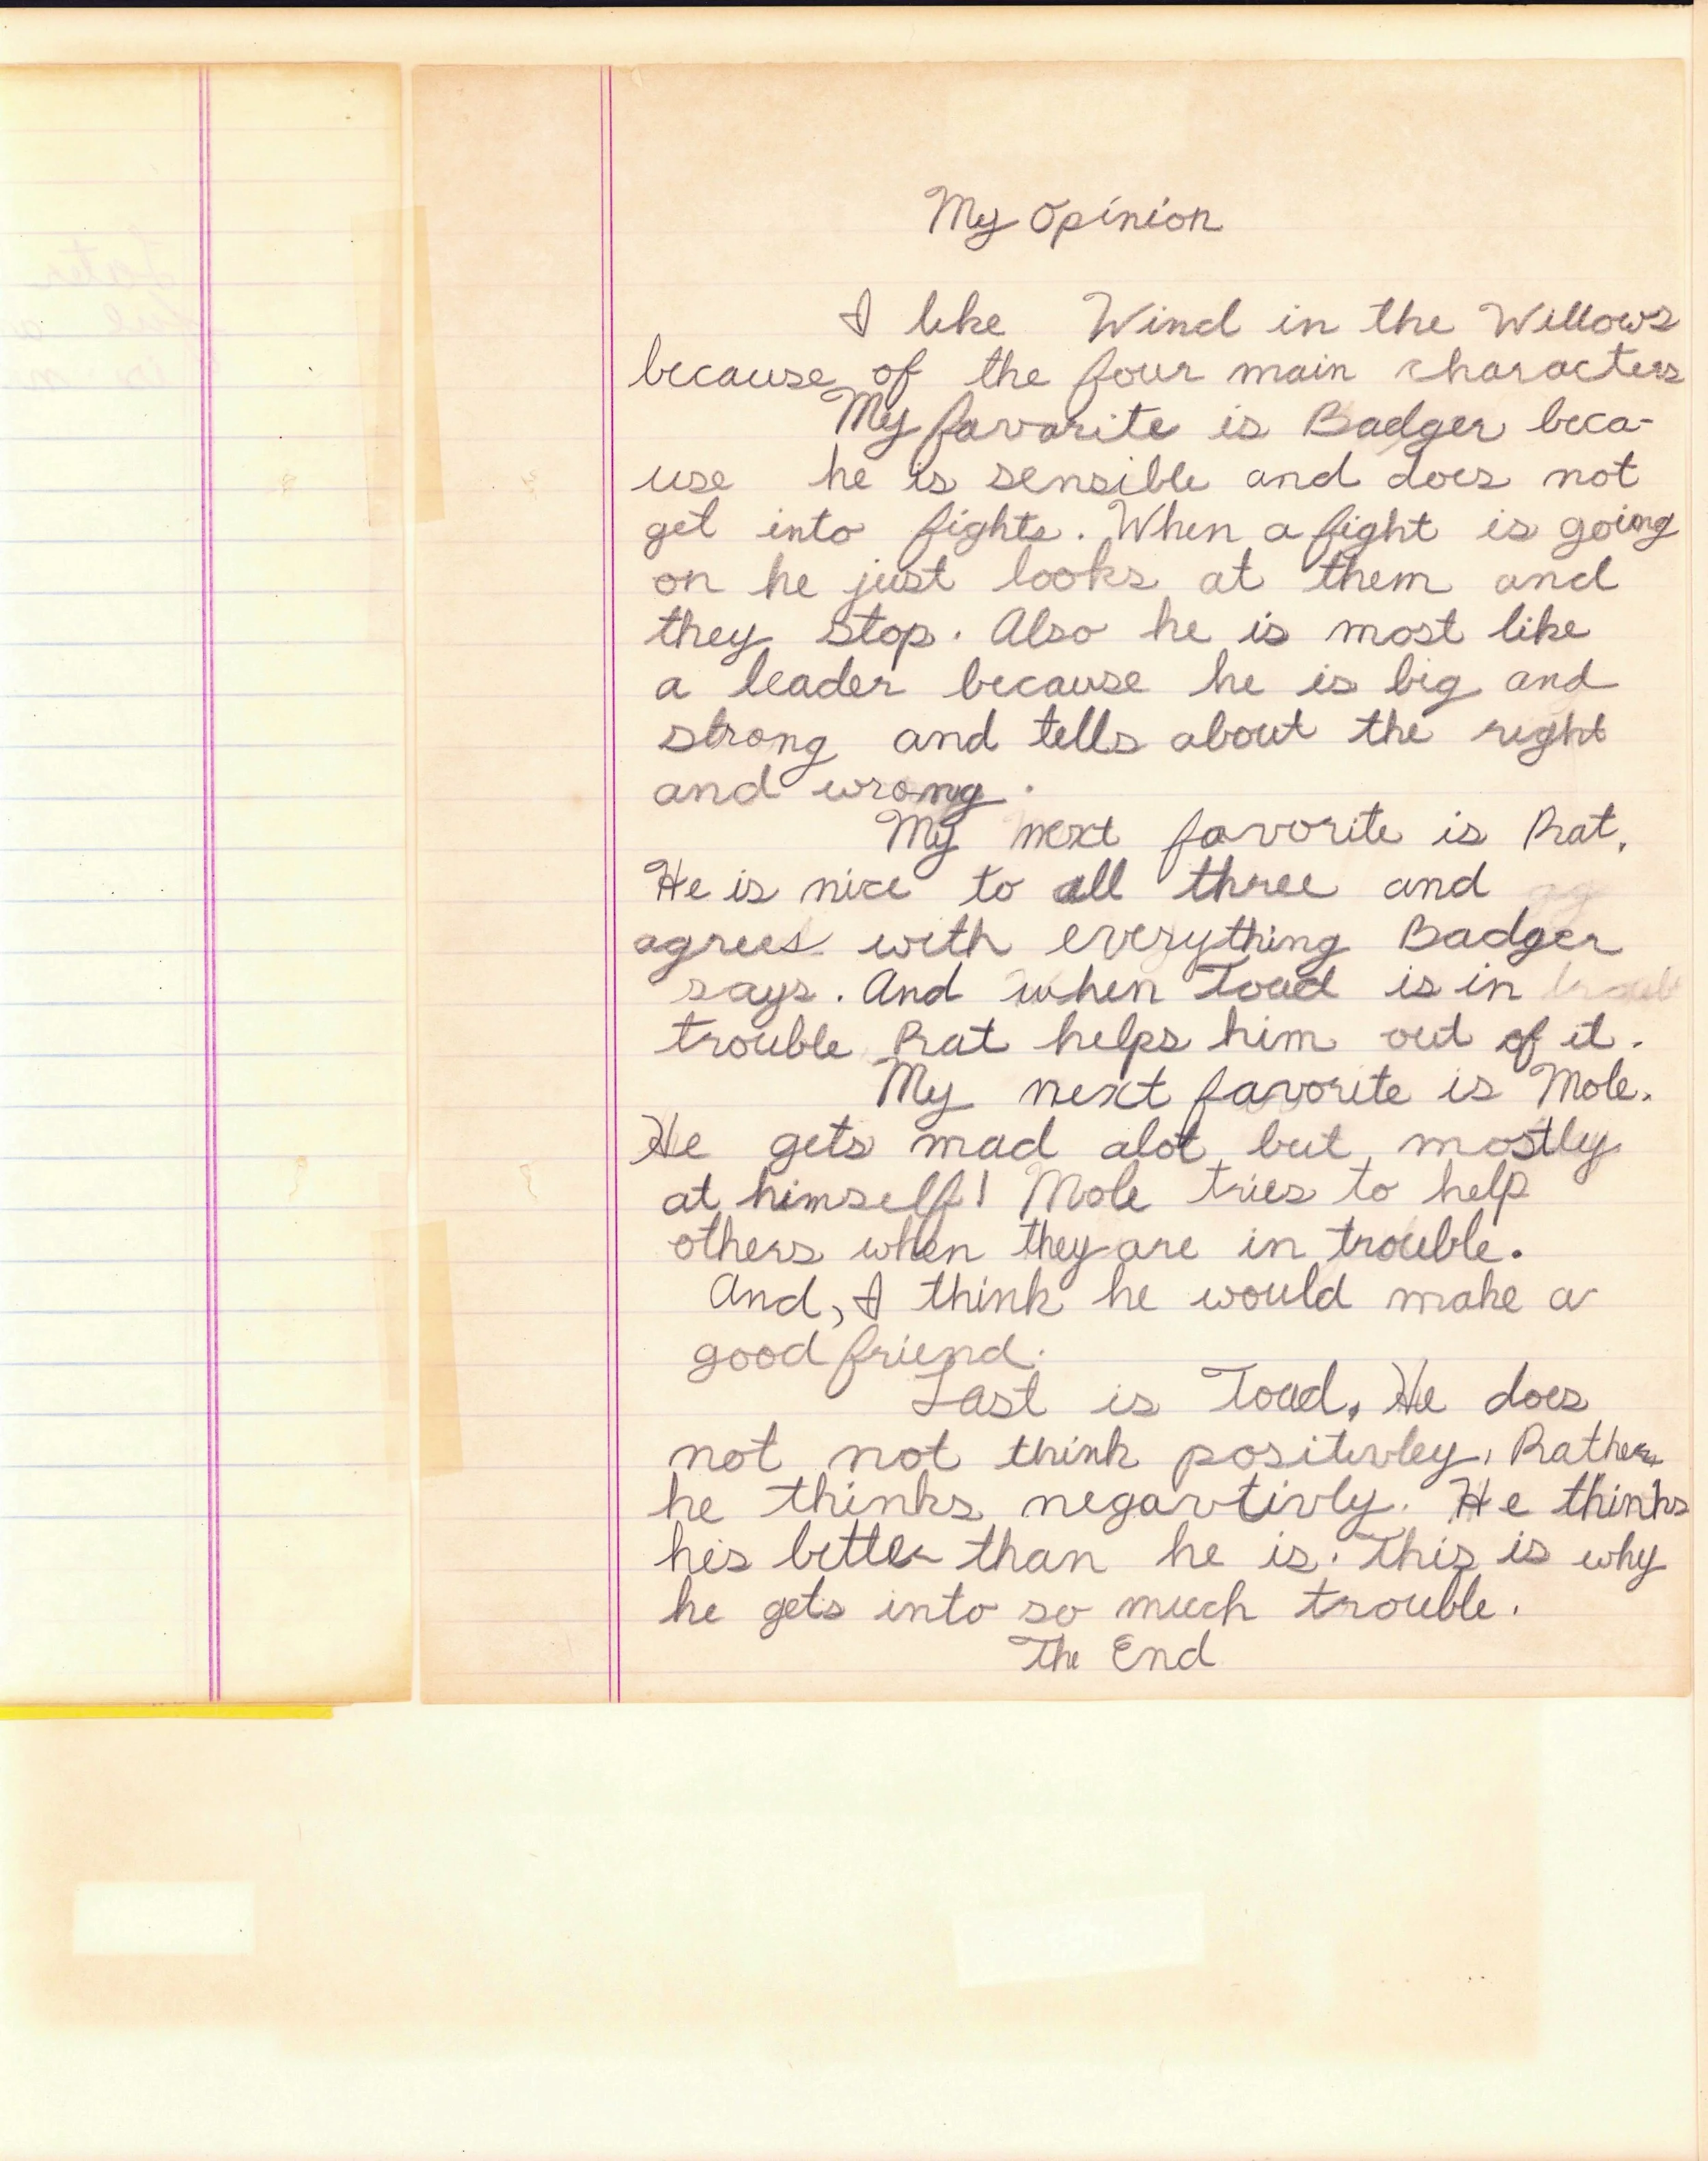 My Opinion
I like Wind in the Willows
because of the four main characters
My favorite is Badger beca-
use he is sensible and does not
get into fights. When a fight is going
on he just looks at them and
they stop. Also he is most like
a leader because he is big and
strong and tells about the right
and wrong.
My next favorite is Rat.
He is nice to all three and ag
agrees with everything Badger
says. And when Toad is in troubl
trouble Rat helps him out of it.
My next favorite is Mole.
He gets mad alot but mostly
at himself! Mole tries to help
others when they are in trouble.
And, I think he would make a
good friend.
Last is Toad. He does
not not think positivley. Rather
he thinks negavtivly. He thinks
his better than he is. This is why
he gets into so much trouble.
The End